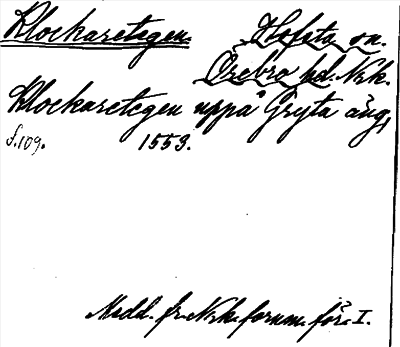 Klockaretegen. Hofsta sn.
Örebro hd. Nrk.
Klockaretegen uppå Gryta äng,
s. 109. 1553.
Medd. fr. Nrk. fornm. för. I.